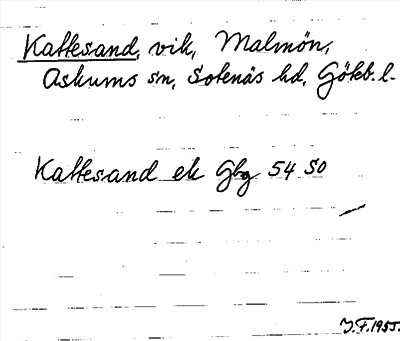 Kattesand, vik, Malmön,
Askums sn, Sotenäs hd, Göteb. l.
Kattesand ek Gbg 54 SO
J.F. 1955.